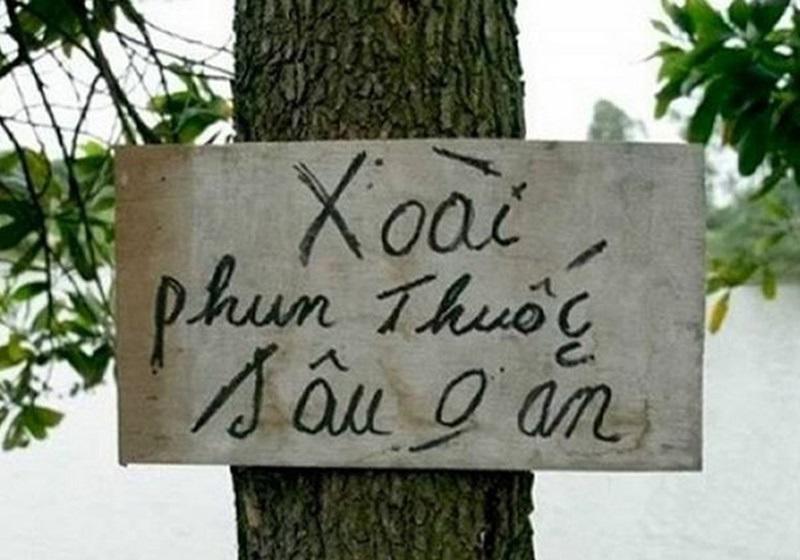 Xoài
phun Thuốc
Sâu 0 ăn